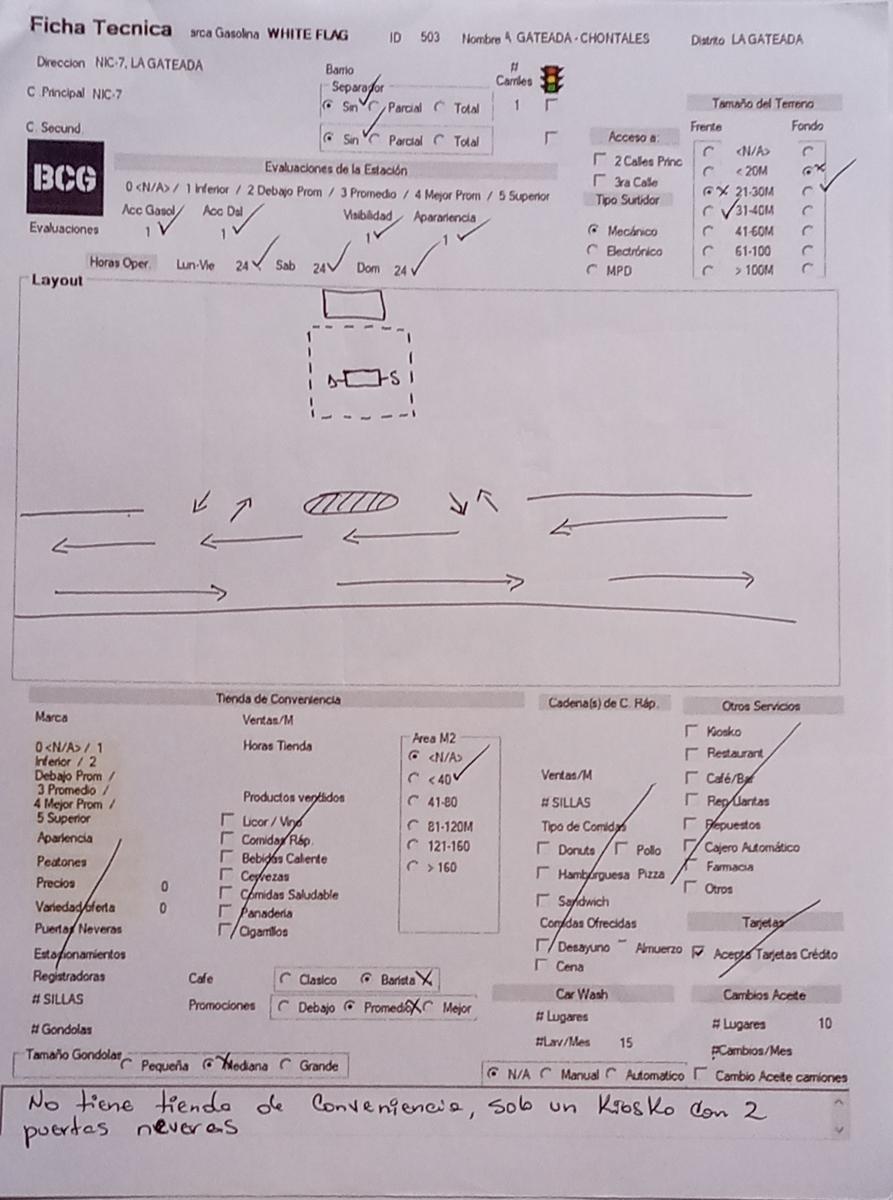 Ficha Tecnica arca Gasolina WHITE FLAG ID 503 Nombre A GATEADA - CHONTALES Distrito LA GATEADA
Direccion NIC-7, LA GATEADA
C .Principal NIC-7
C. Secund.
Barrio
Separador
Sin Parcial Total
Sin Parcial Total
# Carriles
1
Acceso a:
2 Calles Princ
3ra Calle
Tipo Surtidor
Mecánico
Electrónico
MPD
Tamaño del Terreno
Frente Fondo
<N/A>
< 20M
21-30M
31-40M
41-60M
61-100
> 100M
BCG
Evaluaciones de la Estación
0 <N/A> / 1 Inferior / 2 Debajo Prom / 3 Promedio / 4 Mejor Prom / 5 Superior
Acc Gasol Acc Dsl Visibilidad Aparariencia
Evaluaciones 1 1 1 1
Horas Oper. Lun-Vie 24 Sab 24 Dom 24
Layout
D S
Tienda de Conveniencia
Marca
0 <N/A> / 1
Inferior / 2
Debajo Prom /
3 Promedio /
4 Mejor Prom /
5 Superior
Apariencia
Peatones
Precios 0
Variedad/oferta 0
Puertas Neveras
Estacionamientos
Registradoras
# SILLAS
# Gondolas
Tamaño Gondolas Pequeña Mediana Grande
Ventas/M
Horas Tienda
Productos vendidos
Licor / Vino
Comidas Ráp.
Bebidas Caliente
Cervezas
Comidas Saludable
Panaderia
Cigarrillos
Area M2
<N/A>
< 40
41-80
81-120M
121-160
> 160
Cafe Clasico Barista
Promociones Debajo Promedio Mejor
Cadena(s) de C. Ráp.
Ventas/M
# SILLAS
Tipo de Comidas
Donuts Pollo
Hamburguesa Pizza
Sandwich
Comidas Ofrecidas
Desayuno Almuerzo
Cena
Otros Servicios
Kiosko
Restaurant
Café/Bar
Rep Llantas
Repuestos
Cajero Automático
Farmacia
Otros
Tarjetas
Acepta Tarjetas Crédito
Car Wash
# Lugares
#Lav/Mes 15
N/A Manual Automatico
Cambios Aceite
# Lugares 10
#Cambios/Mes
Cambio Aceite camiones
No tiene tienda de Conveniencia, solo un Kiosko con 2
puertas neveras